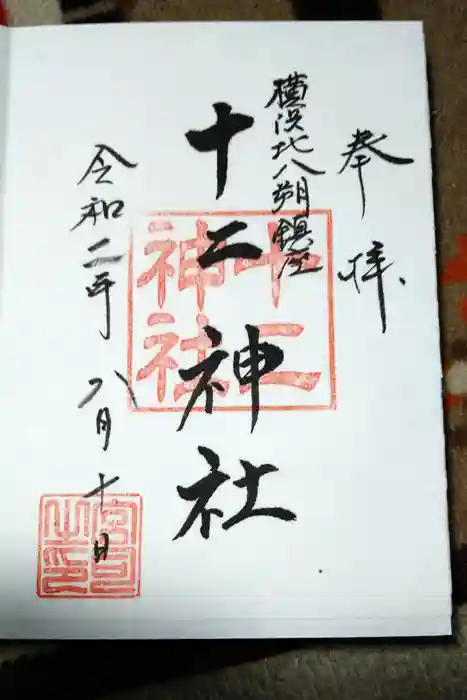 奉拝
横浜北八朔鎮座
十二神社
十二
神社
令和二年八月十日
宮司之印